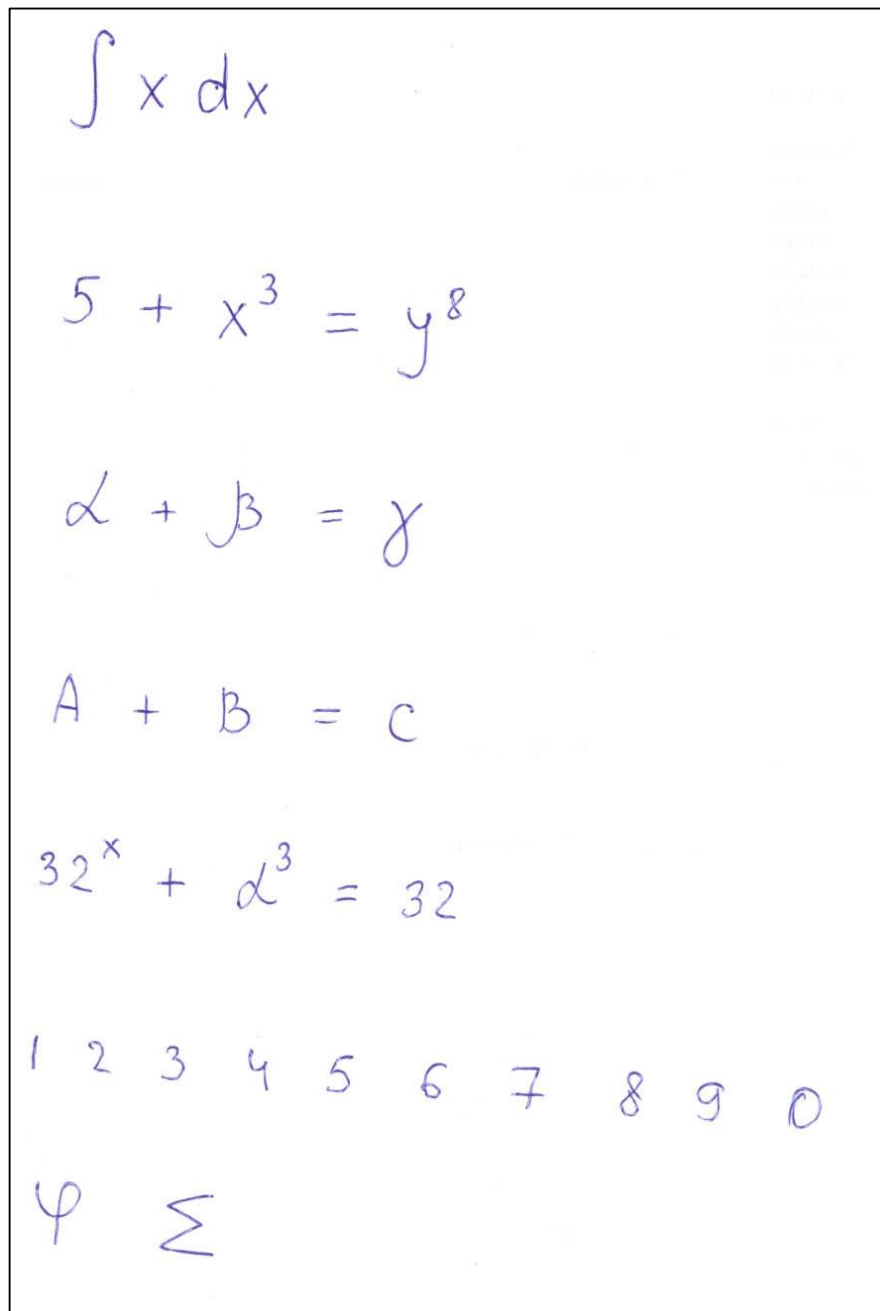 ∫ x dx
5 + x³ = y⁸
α + β = γ
A + B = C
32ˣ + α³ = 32
1 2 3 4 5 6 7 8 9 0
φ Σ